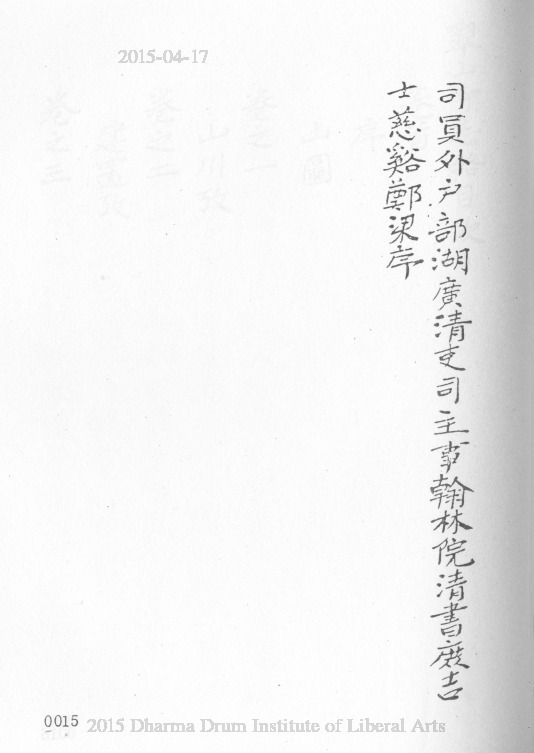 2015-04-17
司員外户部湖廣清吏司主事翰林院清書庶吉
士慈谿鄭梁序
0015
2015 Dharma Drum Institute of Liberal Arts